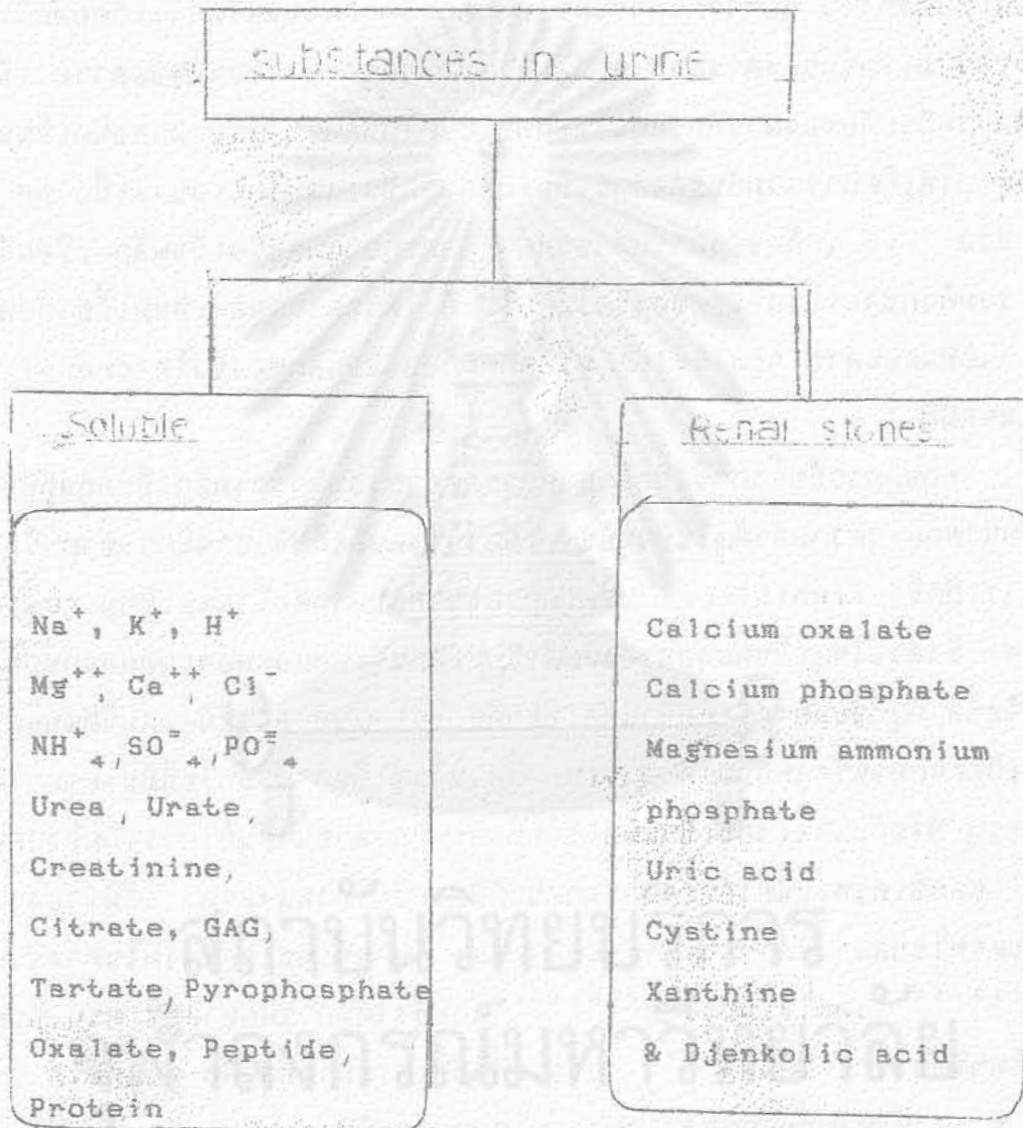 Substances in urine
Soluble
Na⁺, K⁺, H⁺
Mg⁺⁺, Ca⁺⁺, Cl⁻
NH⁺₄, SO⁼₄, PO⁼₄
Urea, Urate,
Creatinine,
Citrate, GAG,
Tartate, Pyrophosphate
Oxalate, Peptide,
Protein
Renal stones
Calcium oxalate
Calcium phosphate
Magnesium ammonium
phosphate
Uric acid
Cystine
Xanthine
& Djenkolic acid
สถาบันวิทยบริการ
จุฬาลงกรณ์มหาวิทยาลัย